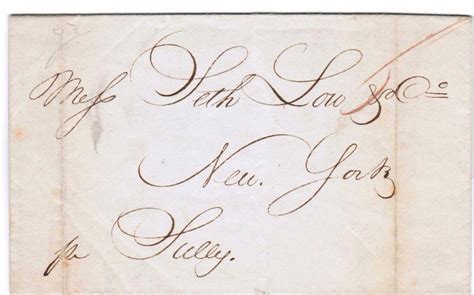 Mess Seth Low & Co
New. York
pr Sully.